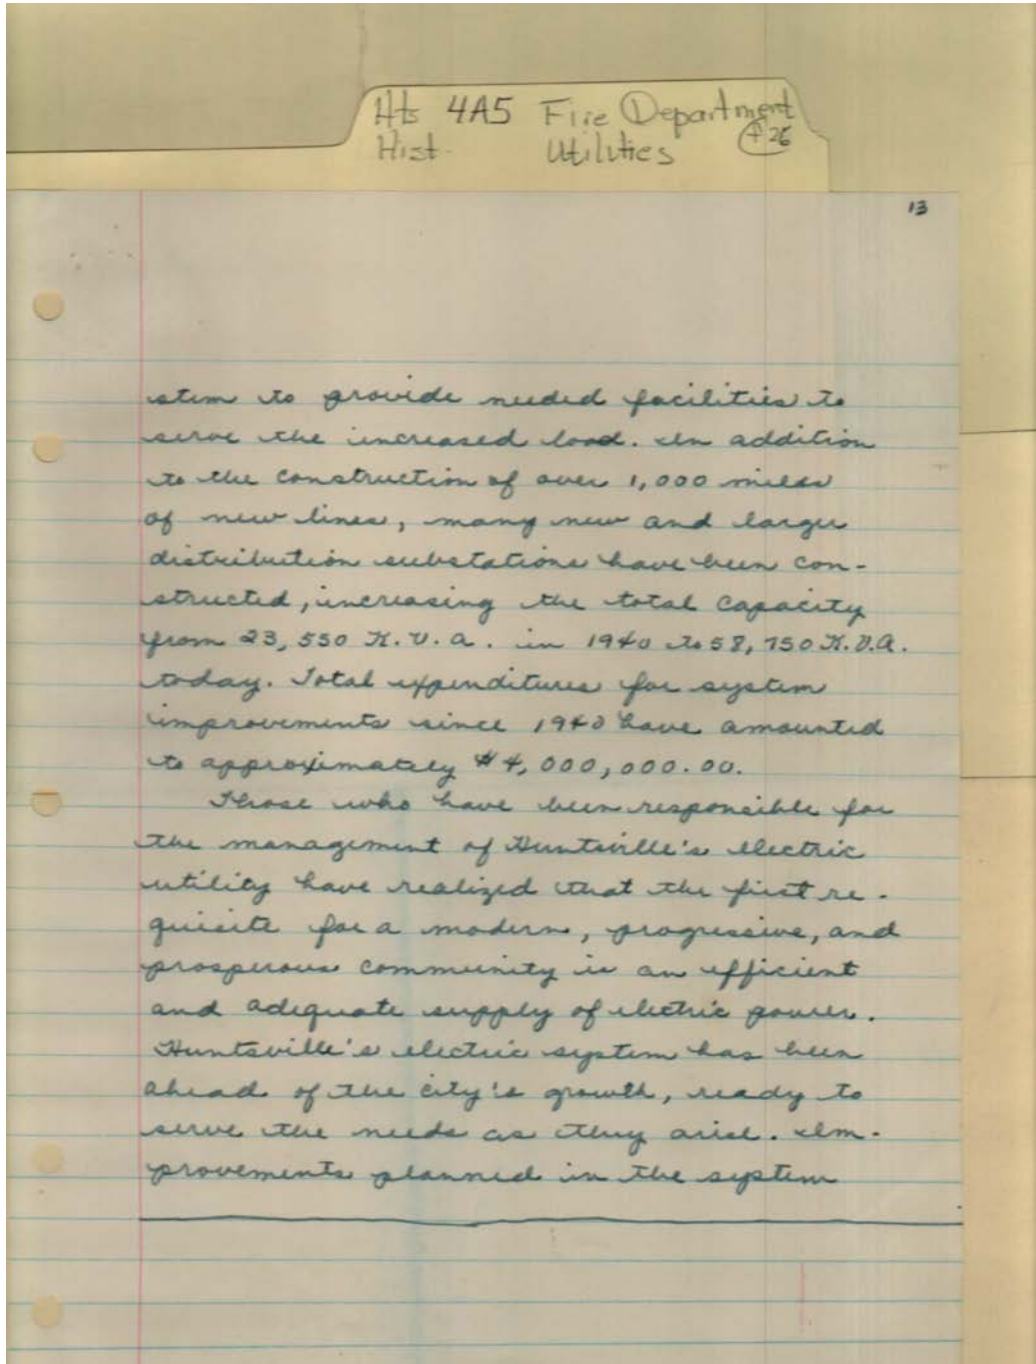 Hts 4A5 Fire Department
Hist. Utilities +26
13
stem to provide needed facilities to
serve the increased load. In addition
to the construction of over 1,000 miles
of new lines, many new and larger
distribution substations have been con-
structed, increasing the total capacity
from 23,550 K.V.A. in 1940 to 58,750 K.V.A.
today. Total expenditures for system
improvements since 1940 have amounted
to approximately $4,000,000.00.
Those who have been responsible for
the management of Huntsville's electric
utility have realized that the first re-
quisite for a modern, progressive, and
prosperous community is an efficient
and adequate supply of electric power.
Huntsville's electric system has been
ahead of the city's growth, ready to
serve the needs as they arise. Im-
provements planned in the system